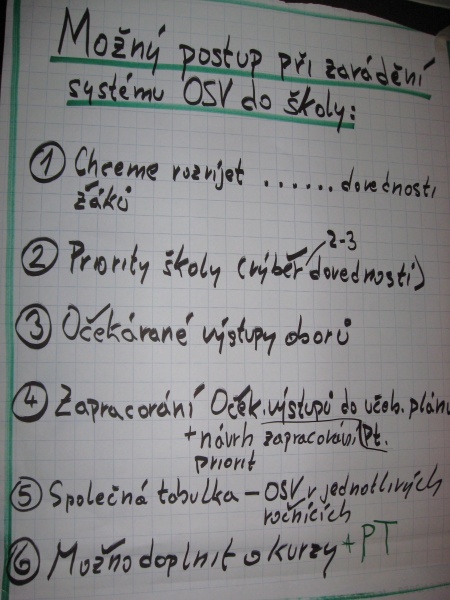 Možný postup při zavádění
systému OSV do školy:
① Chceme rozvíjet ...... dovednosti
žáků
2-3
② Priority školy (výběr dovedností)
③ Očekávané výstupy oborů
④ Zapracování Oček. výstupů do učeb. plánu
+ návrh zapracování Pt.
priorit
⑤ Společná tabulka – OSV v jednotlivých
ročnících
⑥ Možno doplnit o kurzy + PT